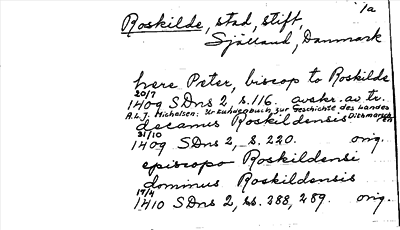 1a
Roskilde, stad, stift,
Själland, Danmark
here Peter, biscop to Roskilde
20/7
1409 SDns 2, s. 116. avskr. av tr.
A.L.J. Michelsen. Urkundenbuch zur Geschichte des Landes
decanus Roskildensis Dithmarschen
31/10
1409 SDns 2, s. 220. orig.
episcopo Roskildensi
dominus Roskildensis
19/4
1410 SDns 2, ss. 288, 289. orig.